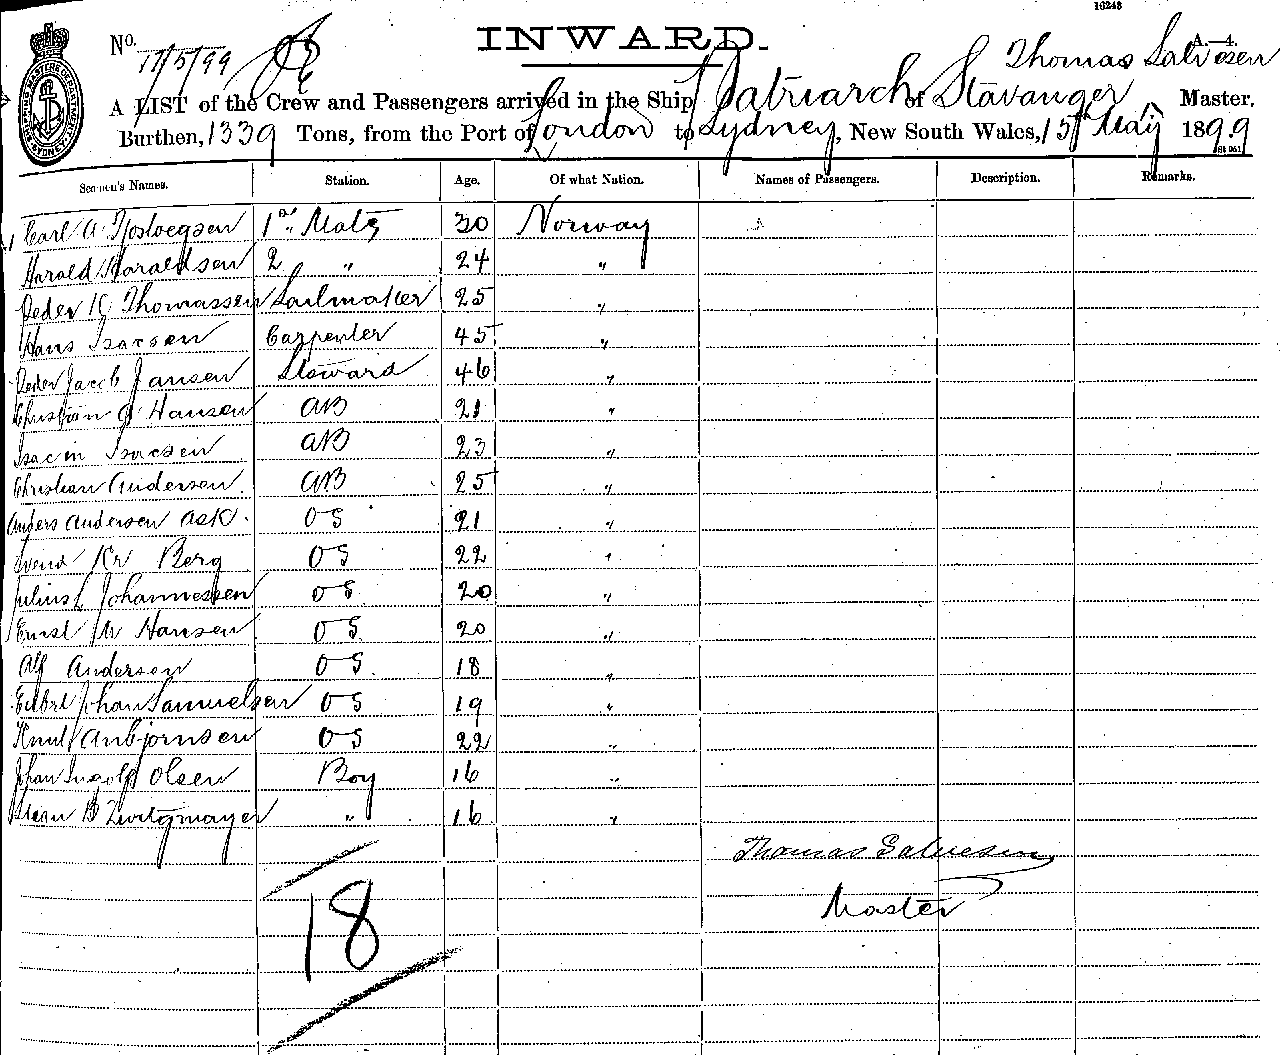 16243
No. 17/5/99
INWARD.
A.—4.
Thomas Salvesen
A LIST of the Crew and Passengers arrived in the Ship Patriarch of Stavanger Master,
Burthen, 1339 Tons, from the Port of London to Sydney, New South Wales, 15th May 1899
Seamen's Names. Station. Age. Of what Nation. Names of Passengers. Description. Remarks.
Carl A 1st Mate 30 Norway
Harald Haraldsen 2 " 24 "
Peder K Thomassen Sailmaker 25 "
Hans Isacsen Carpenter 45 "
Peder Jacob Jansen Steward 46 "
Christian G Hansen AB 21 "
Isacin Isacsen AB 23 "
Christian Andersen AB 25 "
Anders Andersen Ask. OS 21 "
Svend Kr Berg OS 22 "
Julius L Johannessen OS 20 "
Ernst M Hansen OS 20 "
Alf Andersen OS. 18 "
Johan Samuelsen OS 19 "
Knut Anbjornsen OS 22 "
Johan Ingolf Olsen Boy 16 "
B " 16 "
Thomas Salvesen
Master
18